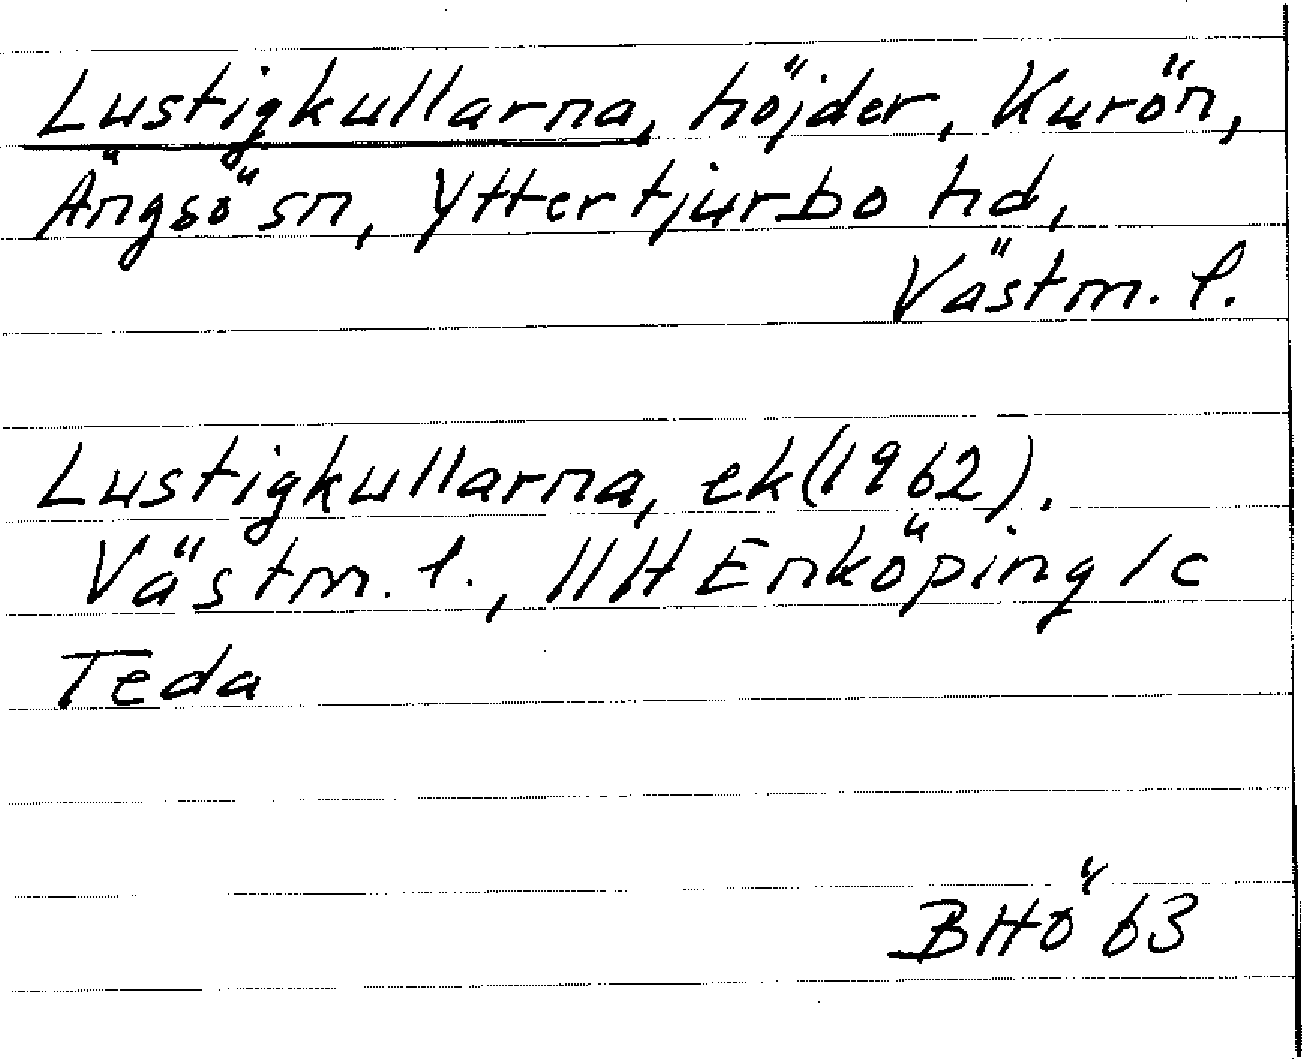 Lustigkullarna, höjder, Kurön,
Ängsö sn, Yttertjurbo hd,
Västm. l.
Lustigkullarna, ek (1962).
Västm. l., 11H Enköping 1c
Teda
BHö 63